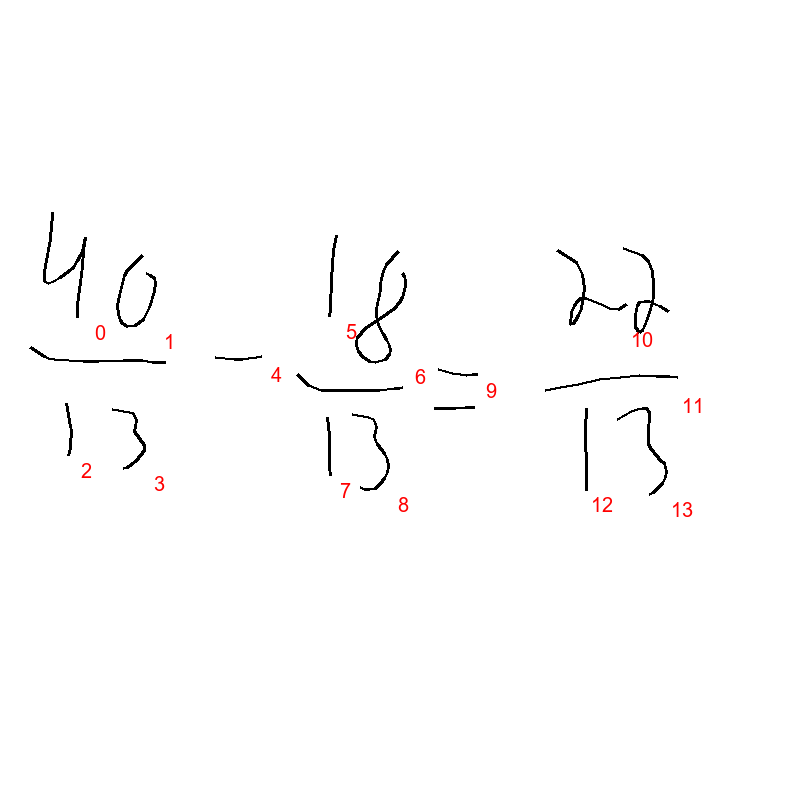 40/13 - 18/13 = 22/13
0 1 2 3 4 5 6 7 8 9 10 11 12 13